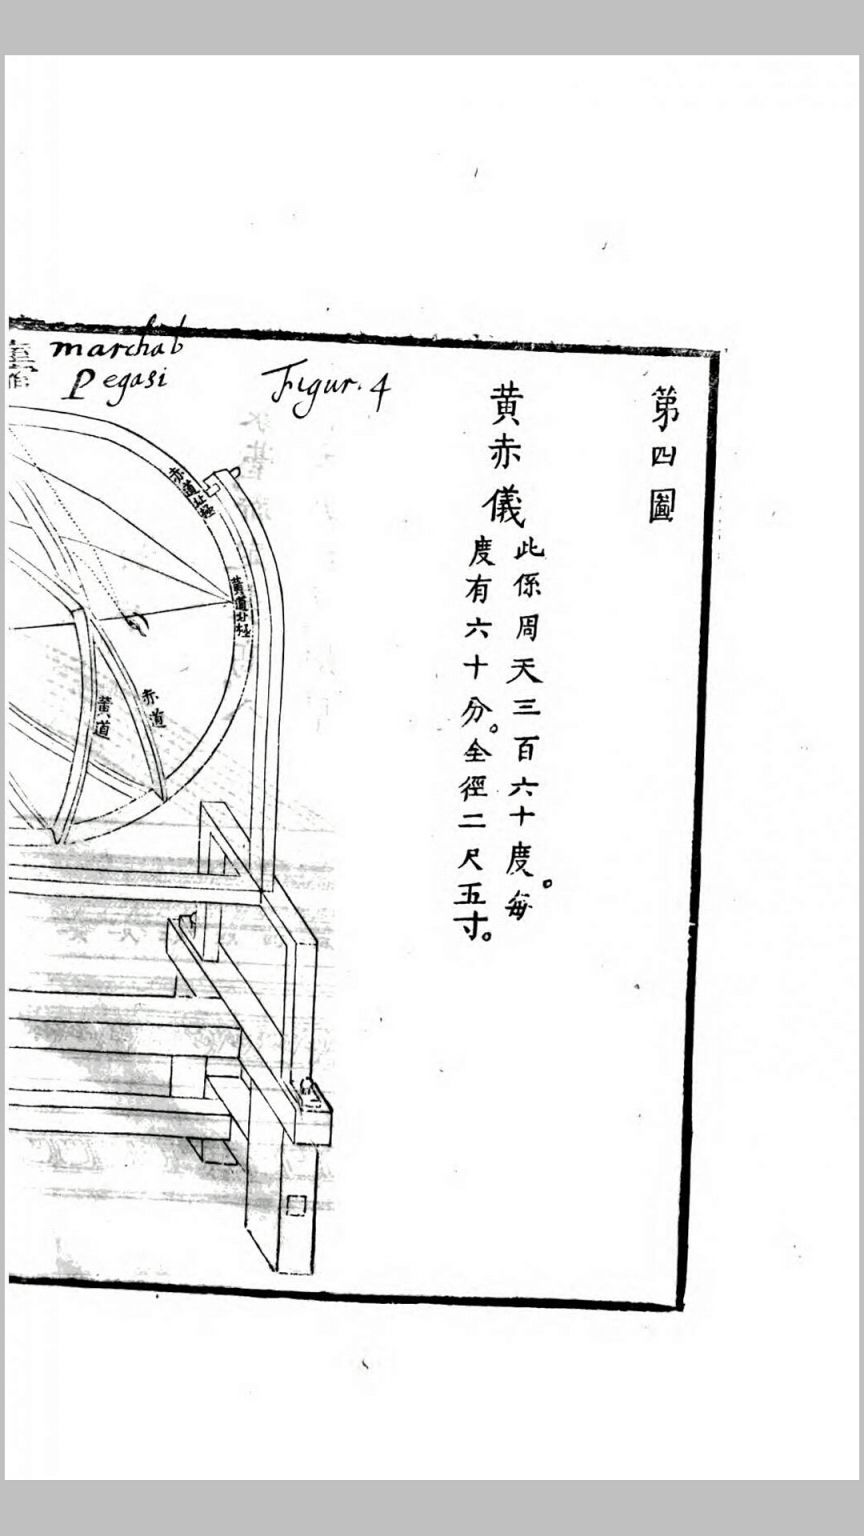 第四圖
黃赤儀
此係周天三百六十度。每
度有六十分。全徑二尺五寸。
Figur. 4
marchab
Pegasi
室宿
赤道北極
黃道北極
赤道
黃道